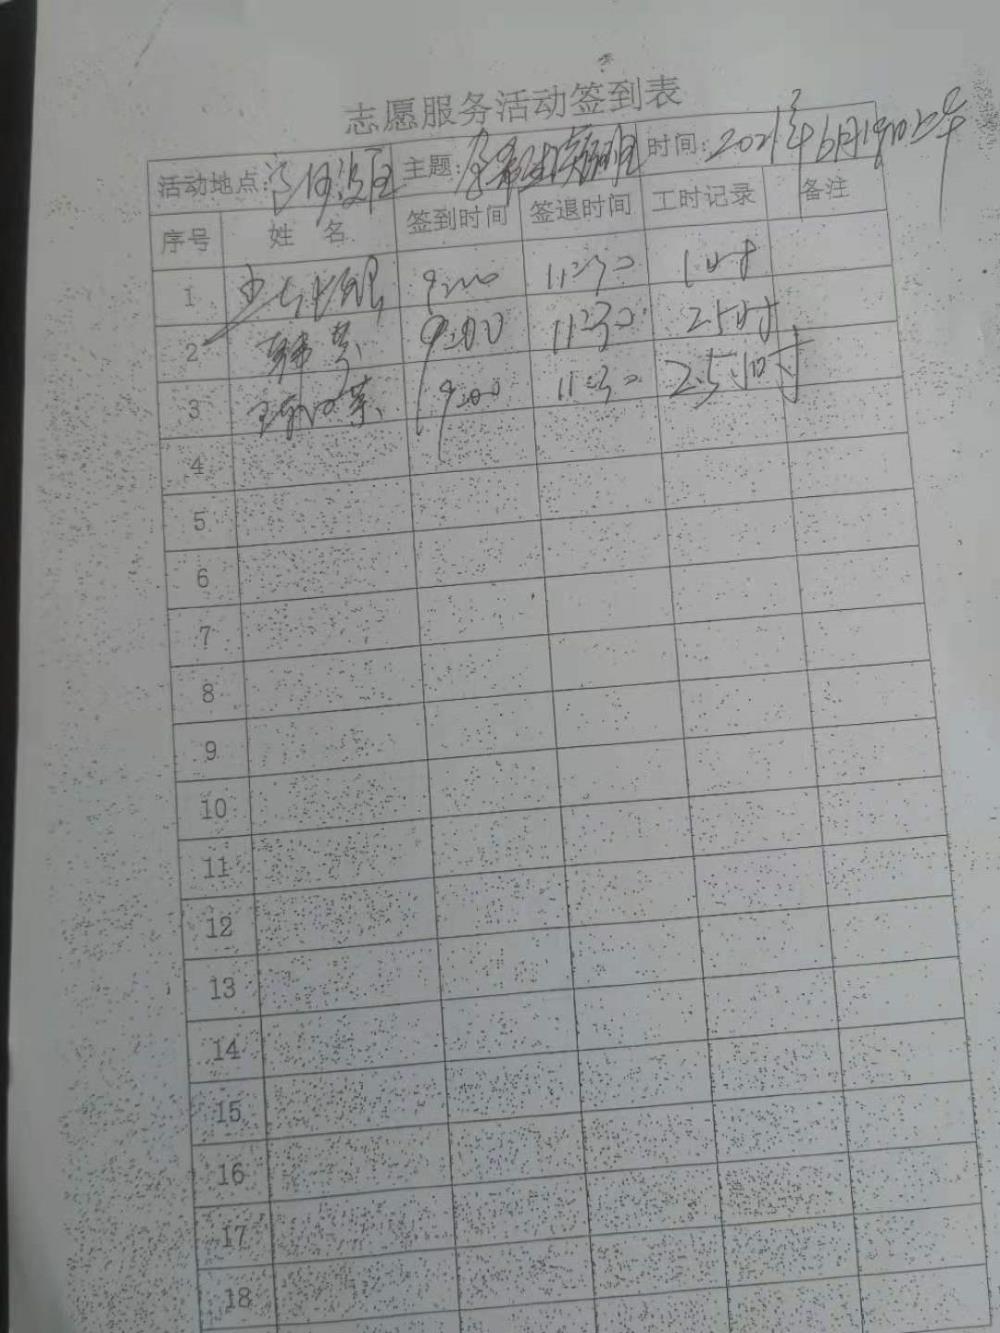 志愿服务活动签到表
活动地点: 主题: 时间: 2021年6月19日上午
序号 姓 名 签到时间 签退时间 工时记录 备注
1 9:00 11:30 1时
2 韩 9:00 11:30 2.5时
3 9:00 11:30 2.5时
4
5
6
7
8
9
10
11
12
13
14
15
16
17
18